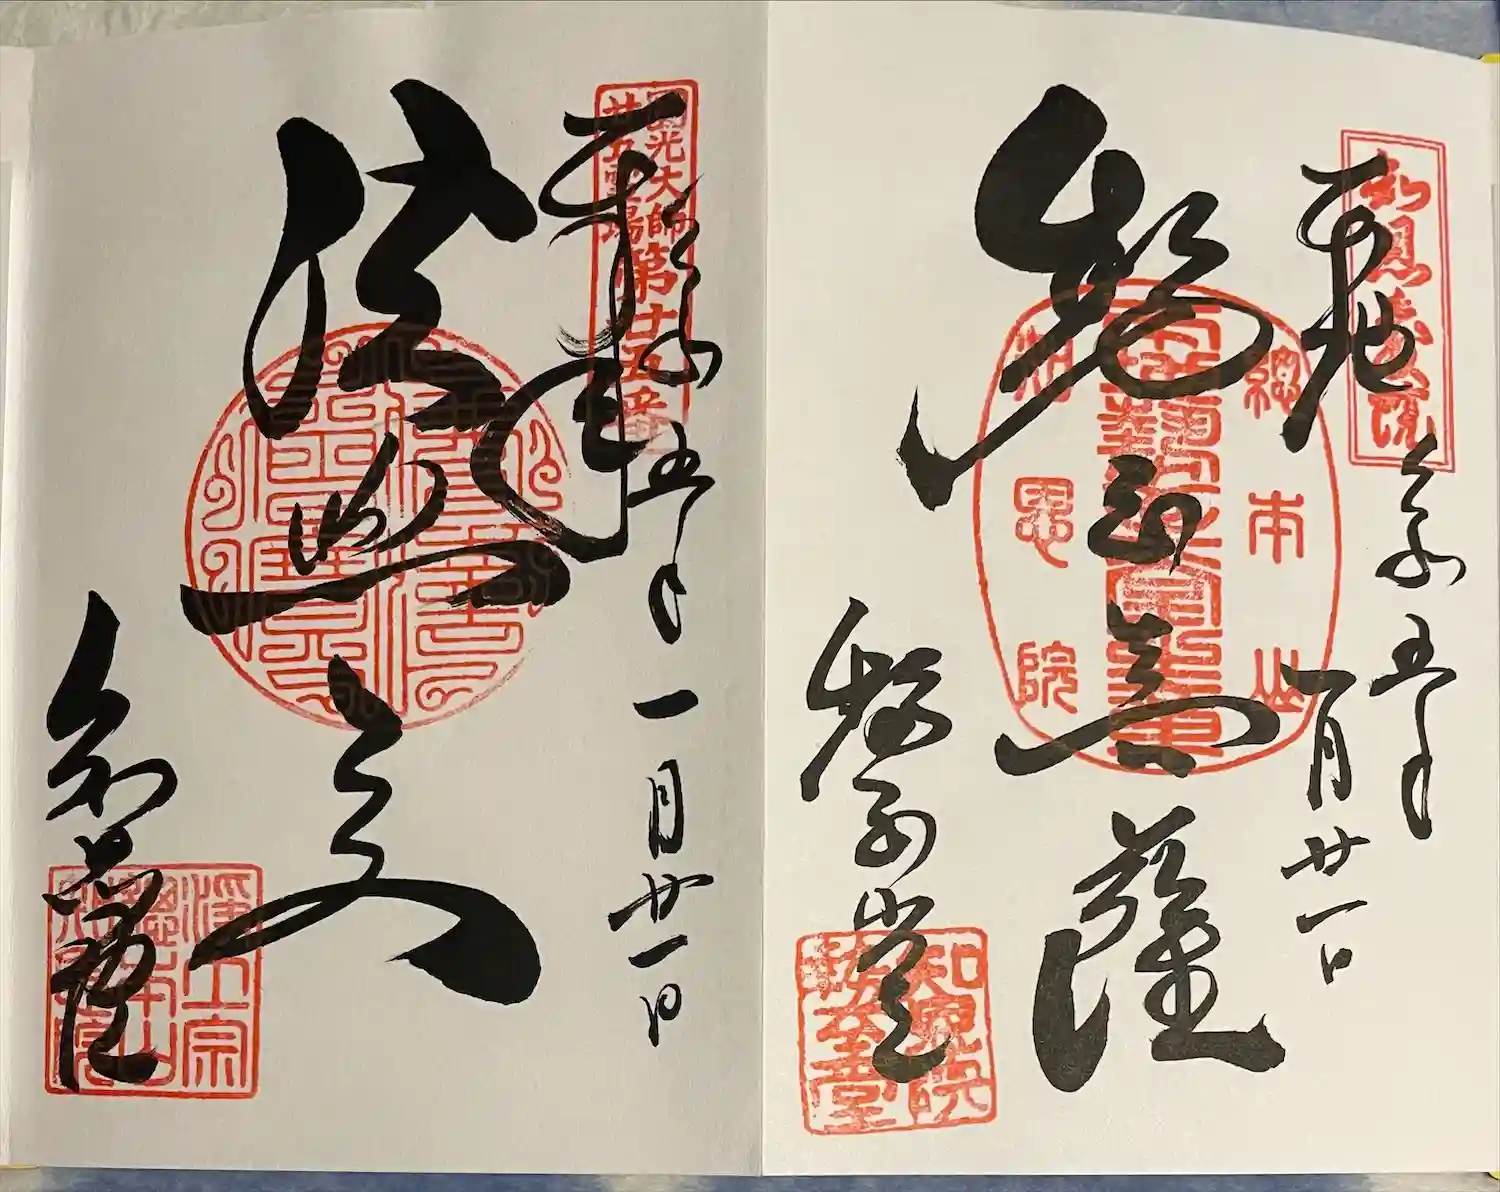 知恩教院
奉拝
令和五年
一月廿一日
總本山
知恩院
勢至菩薩
勢至堂
知恩院
勢至堂
圓光大師
廿五霊場
第廿五番
令和五年
一月廿一日
法然上人
知恩院
浄土宗
總本山
知恩院